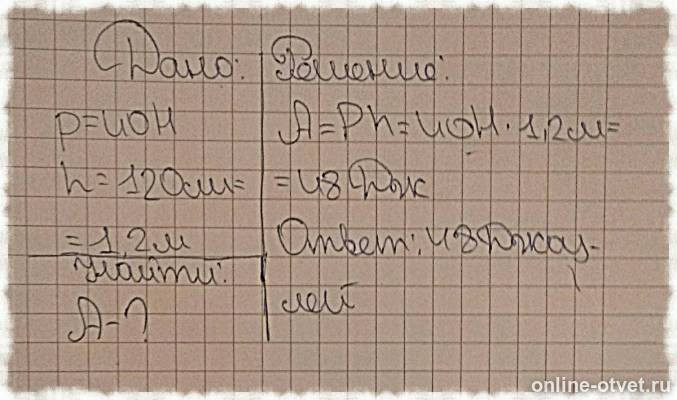 Дано:
p=40Н
h=120см=
=1,2м
Найти:
A-?
Решение:
A=Ph=40Н·1,2м=
=48Дж
Ответ: 48Джоу-
лей
online-otvet.ru